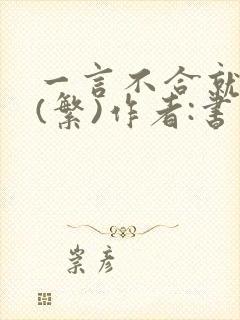 一言不合就
(繁)作者:書
崇彦